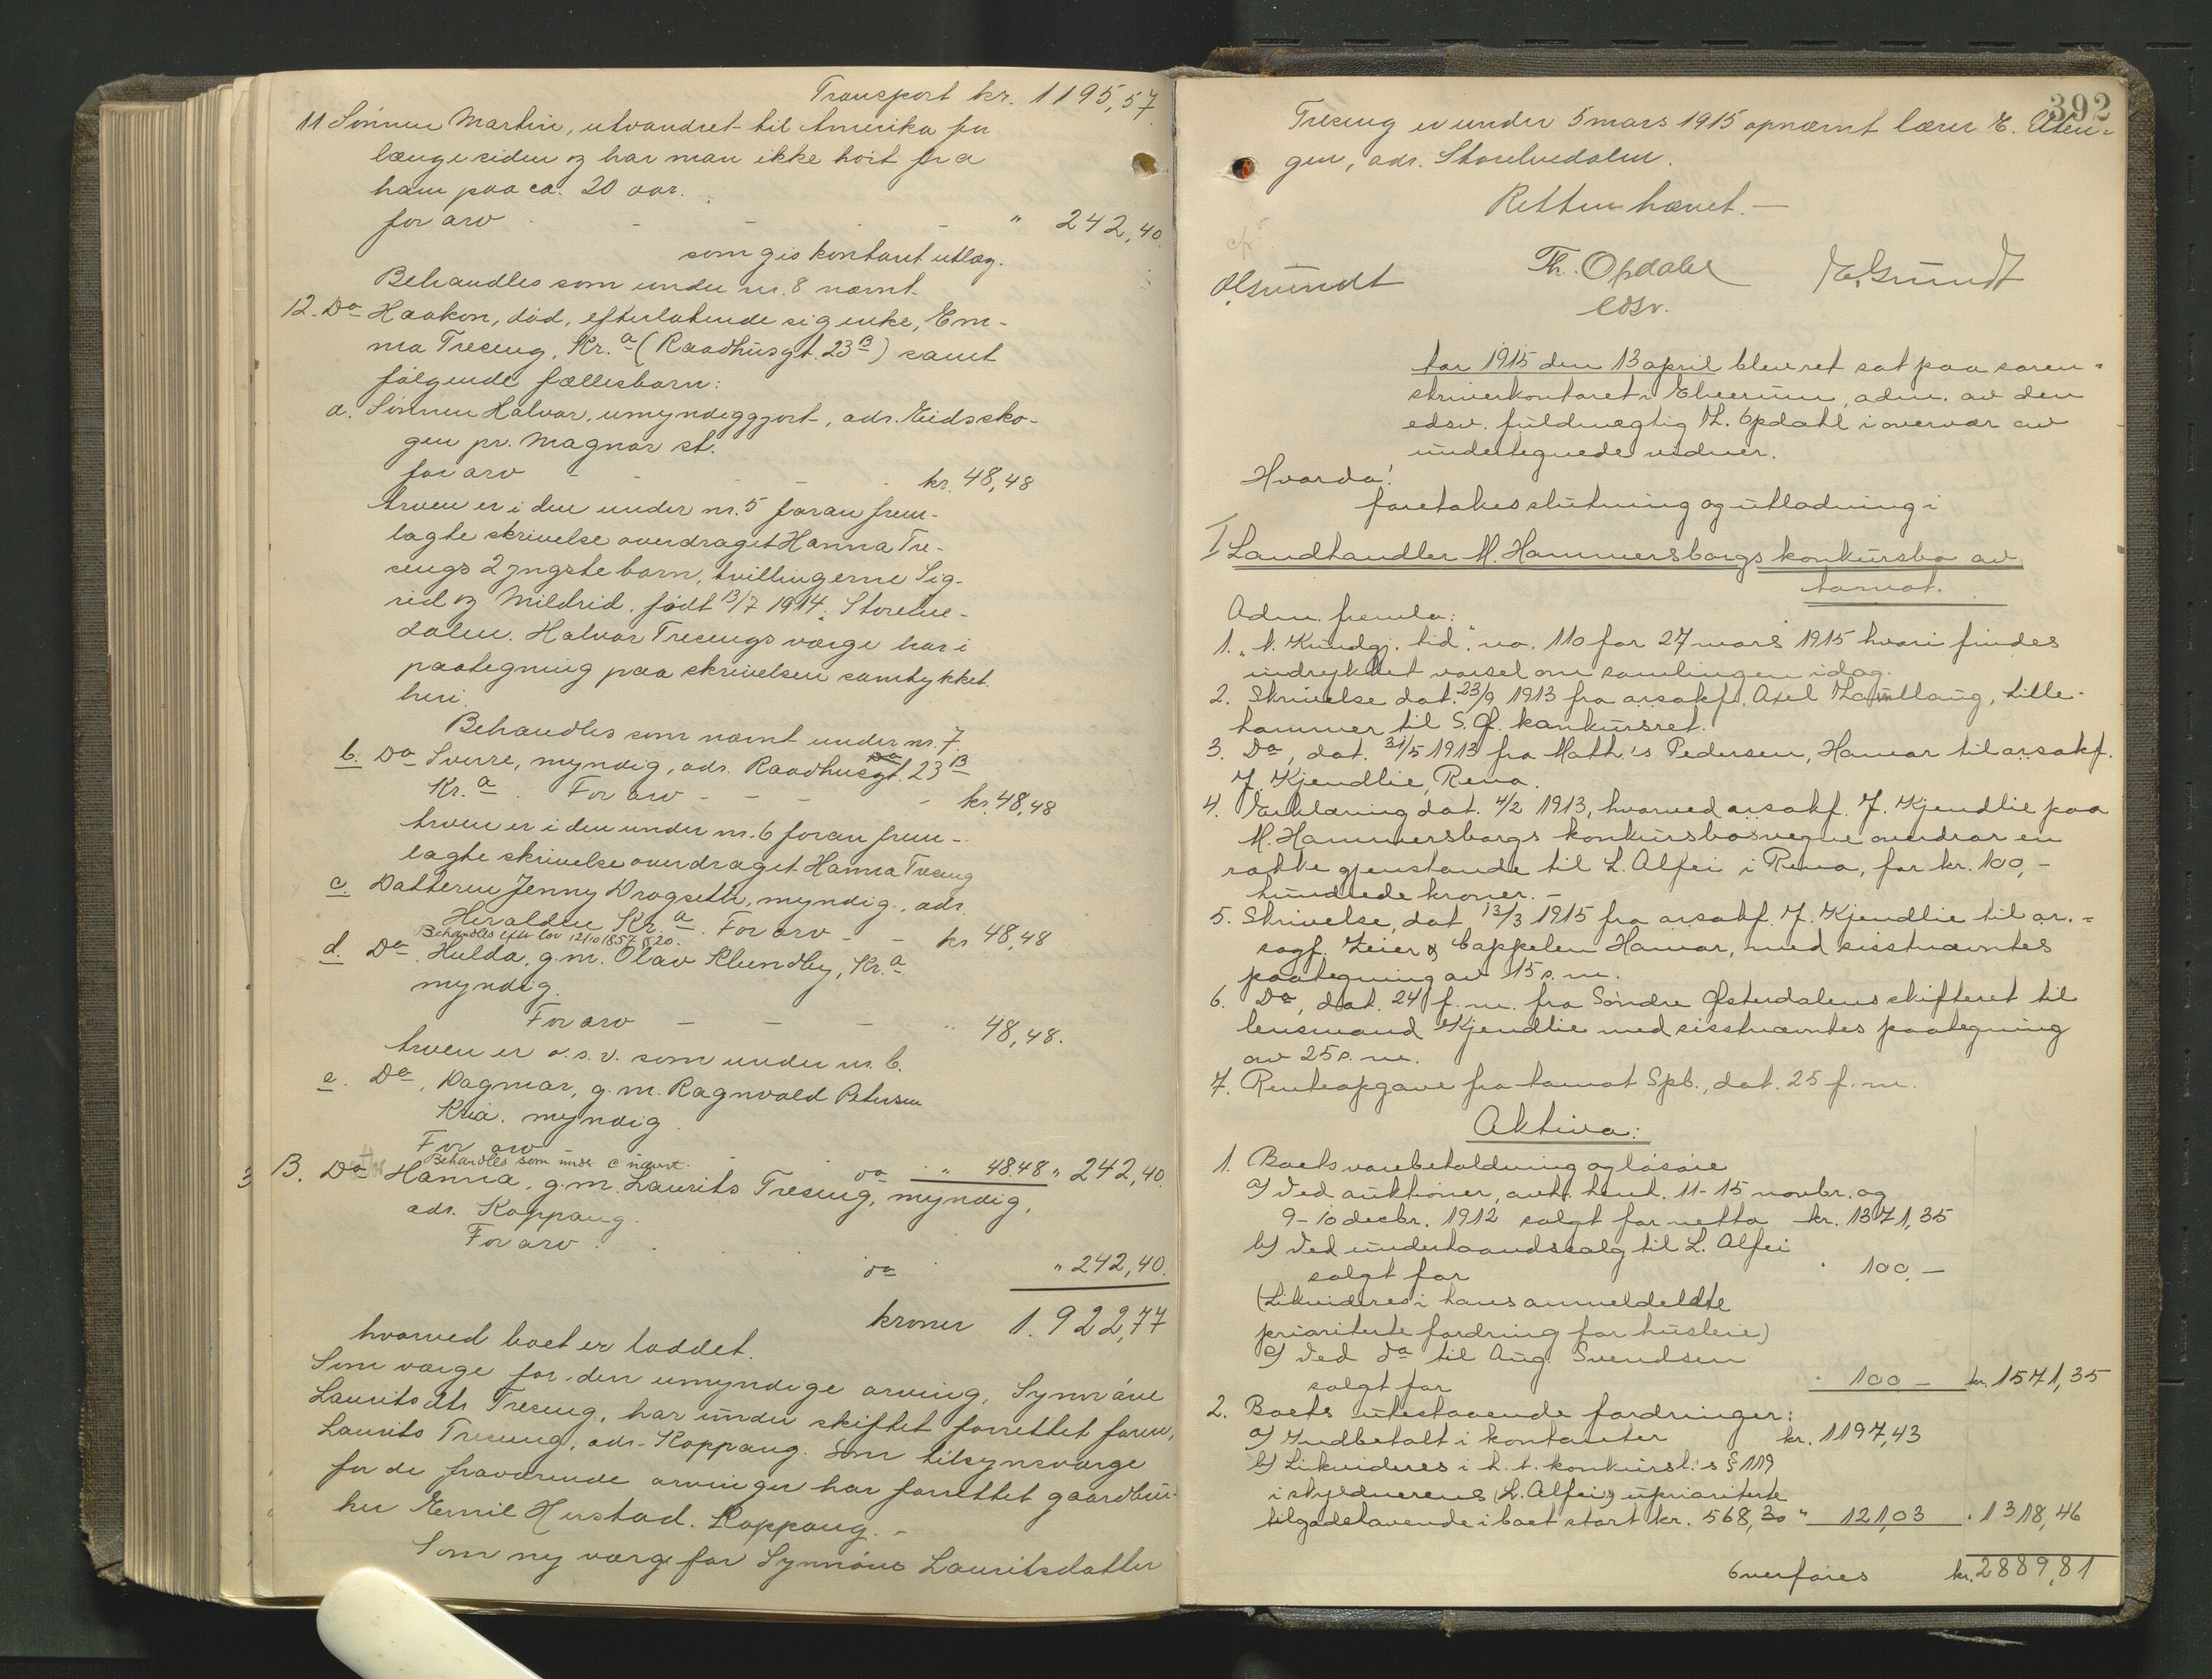 Transport kr. 1195,57
11 Sönnen Martin, utvandret til Amerika for
længe siden og har man ikke hört fra
ham paa ca. 20 aar.
for arv - - - " 242,40.
som gis kontant utlæg.
Behandles som under nr. 8 nævnt.
12. Do Haakon, död, efterlatende sig enke, Em-
ma Treseng, Kr.a (Raadhusgt. 23B) samt
følgende fællesbarn:
a. Sönnen Halvar, umyndiggjort, adr. Eidssko-
gen pr. Magnor st.
for arv - - - kr. 48,48
Arven er i den under nr. 5 foran frem-
lagte skrivelse overdraget Hanna Tre-
sengs 2 yngste barn, tvillingerne Sig-
rid og Mildrid, födt 13/7 1914, Storelve-
dalen. Halvar Tresengs værge har i
paategning paa skrivelsen samtykket
heri.
Behandles som nævnt under nr. 7.
b. Do Sverre, myndig, adr. Raadhusgt. 23B
Kr.a. For arv - - - kr. 48,48
Arven er i den under nr. 6 foran frem-
lagte skrivelse overdraget Hanna Treseng
c. Datteren Jenny Dragseth, myndig, adr.
Heralden Kr.a. For arv - - kr 48,48
Behandles efter lov 12/10 1857 § 20.
d. Do Hulda, g.m. Olav Klundby, Kr.a
myndig.
For arv - - - " 48,48.
Arven er o.s.v. som under nr. b.
e. Do, Dagmar, g.m. Ragnvald Petersen
Kria. myndig.
For arv
Behandles som under c nævnt. do " 48.48 " 242,40.
13. Do Hanna, g.m. Laurits Treseng, myndig,
adr. Koppang.
For arv . . . do " 242,40.
kroner 1.922,77
hvorved boet er loddet.
Som værge for den umyndige arving, Synnöve
Lauritsdtr. Treseng, har under skiftet forrettet faren,
Laurits Treseng, adr. Koppang. Som tilsynsværge
for de fraværende arvinger har forrettet gaardbru-
ker Emil Hustad. Koppang. -
Som ny værge for Synnöve Lauritsdatter
392
Treseng er under 5 mars 1915 opnævnt lærer E. Aten-
gen, adr. Storelvedalen.
Retten hævet. -
OGrundt Th. Opdahl E. Grundt
edsv.
Aar 1915 den 13 april blev ret sat paa soren-
skriverkontoret i Elverum, adm. av den
edsv. fuldmægtig Th. Opdahl i overvær av
undertegnede vidner.
Hvorda:
foretakes slutning og utlodning i
I Landhandler M. Hammersborgs konkursbo av
Aamot.
Adm. fremla:
1. "N. Kundgj. tid." no. 110 for 27 mars 1915 hvori findes
indrykket varsel om samlingen idag.
2. Skrivelse dat. 23/9 1913 fra orsakf. Axel Thallaug, Lille-
hammer til S. Ø. konkursret.
3. Do, dat. 31/5 1913 fra Math's Pedersen, Hamar til orsakf.
J. Kjendlie, Rena.
4. Erklæring dat. 4/2 1913, hvorved orsakf. J. Kjendlie paa
M. Hammersborgs konkursbos vegne overdrar en
række gjenstande til L. Alfei i Rena, for kr. 100,-
hundrede kroner. -
5. Skrivelse, dat 13/3 1915 fra orsakf. J. Kjendlie til or.-
sagf. Zeier & Cappelen Hamar, med sisstnævntes
paategning av 15 s.m.
6. Do, dat. 24 f.m. fra Söndre Østerdalens skifteret til
lensmand Kjendlie med sisstnævntes paategning
av 25 s.m.
7. Renteopgave fra Aamot Spb., dat. 25 f.m.
Aktiva:
1. Boets varebeholdning og lösöre
a) Ved auktioner, avh. henh. 11-15 novbr. og
9-10 decbr. 1912 solgt for netto kr. 1371,35
b) Ved underhaandssalg til L. Alfei
solgt for " 100,-
(Likvideres i hans anmeldeldte
prioriterte fordring for husleie)
c) Ved do til Aug. Svendsen
solgt for " 100 - kr. 1571,35
2. Boets utestaaende fordringer:
a) Indbetalt i kontanter kr. 1197,43
b) Likvideres i h. t. konkursl.'s § 119
i skyldnerens (L. Alfei's) uprioriterte
tilgodehavende i boet stort kr. 568,30 " 121,03 " 1318,46
Overføres kr. 2889,81